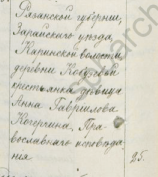 Рязанской губернии,
Зарайскаго уезда,
Каринской волости
деревни
крестьянка девица
Анна Гаврилова
Кочергина, Пра-
вославнаго исповеда-
ния
25.
search